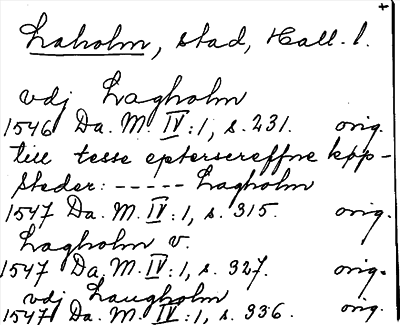 Laholm, stad, Hall. l.
vdj Lagholm
1546 Da. M. IV:1, s. 231. orig.
till tesse eptersereffne køp-
steder: ----- Lagholm
1547 Da. M. IV:1, s. 315. orig.
Lagholm v.
1547 Da. M. IV:1, s. 327. orig.
vdj Laugholm
1547 Da. M. IV:1, s. 336. orig.